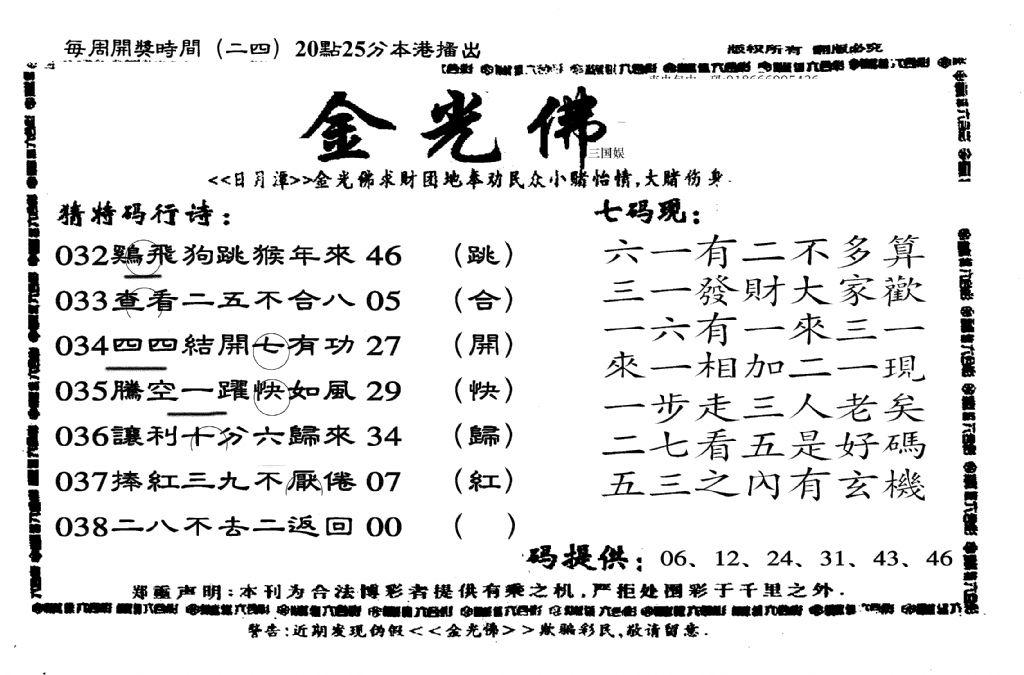 每周開獎時間（二四）20點25分本港播出
版权所有 翻版必究
金光佛
三国娱
<<日月潭>>金光佛求财团地奉劝民众小赌怡情,大赌伤身.
猜特码行诗：
032鷄飛狗跳猴年來 46 （跳）
033查看二五不合八 05 （合）
034四四結開七有功 27 （開）
035騰空一躍快如風 29 （快）
036讓利十分六歸來 34 （歸）
037捧紅三九不厭倦 07 （紅）
038二八不去二返回 00 （ ）
七码现：
六一有二不多算
三一發財大家歡
一六有一來三一
來一相加二一現
一步走三人老矣
二七看五是好碼
五三之內有玄機
码提供：06、12、24、31、43、46
郑重声明:本刊为合法博彩者提供有乘之机,严拒处围彩于千里之外.
警告:近期发现伪假<<金光佛>>欺骗彩民,敬请留意.